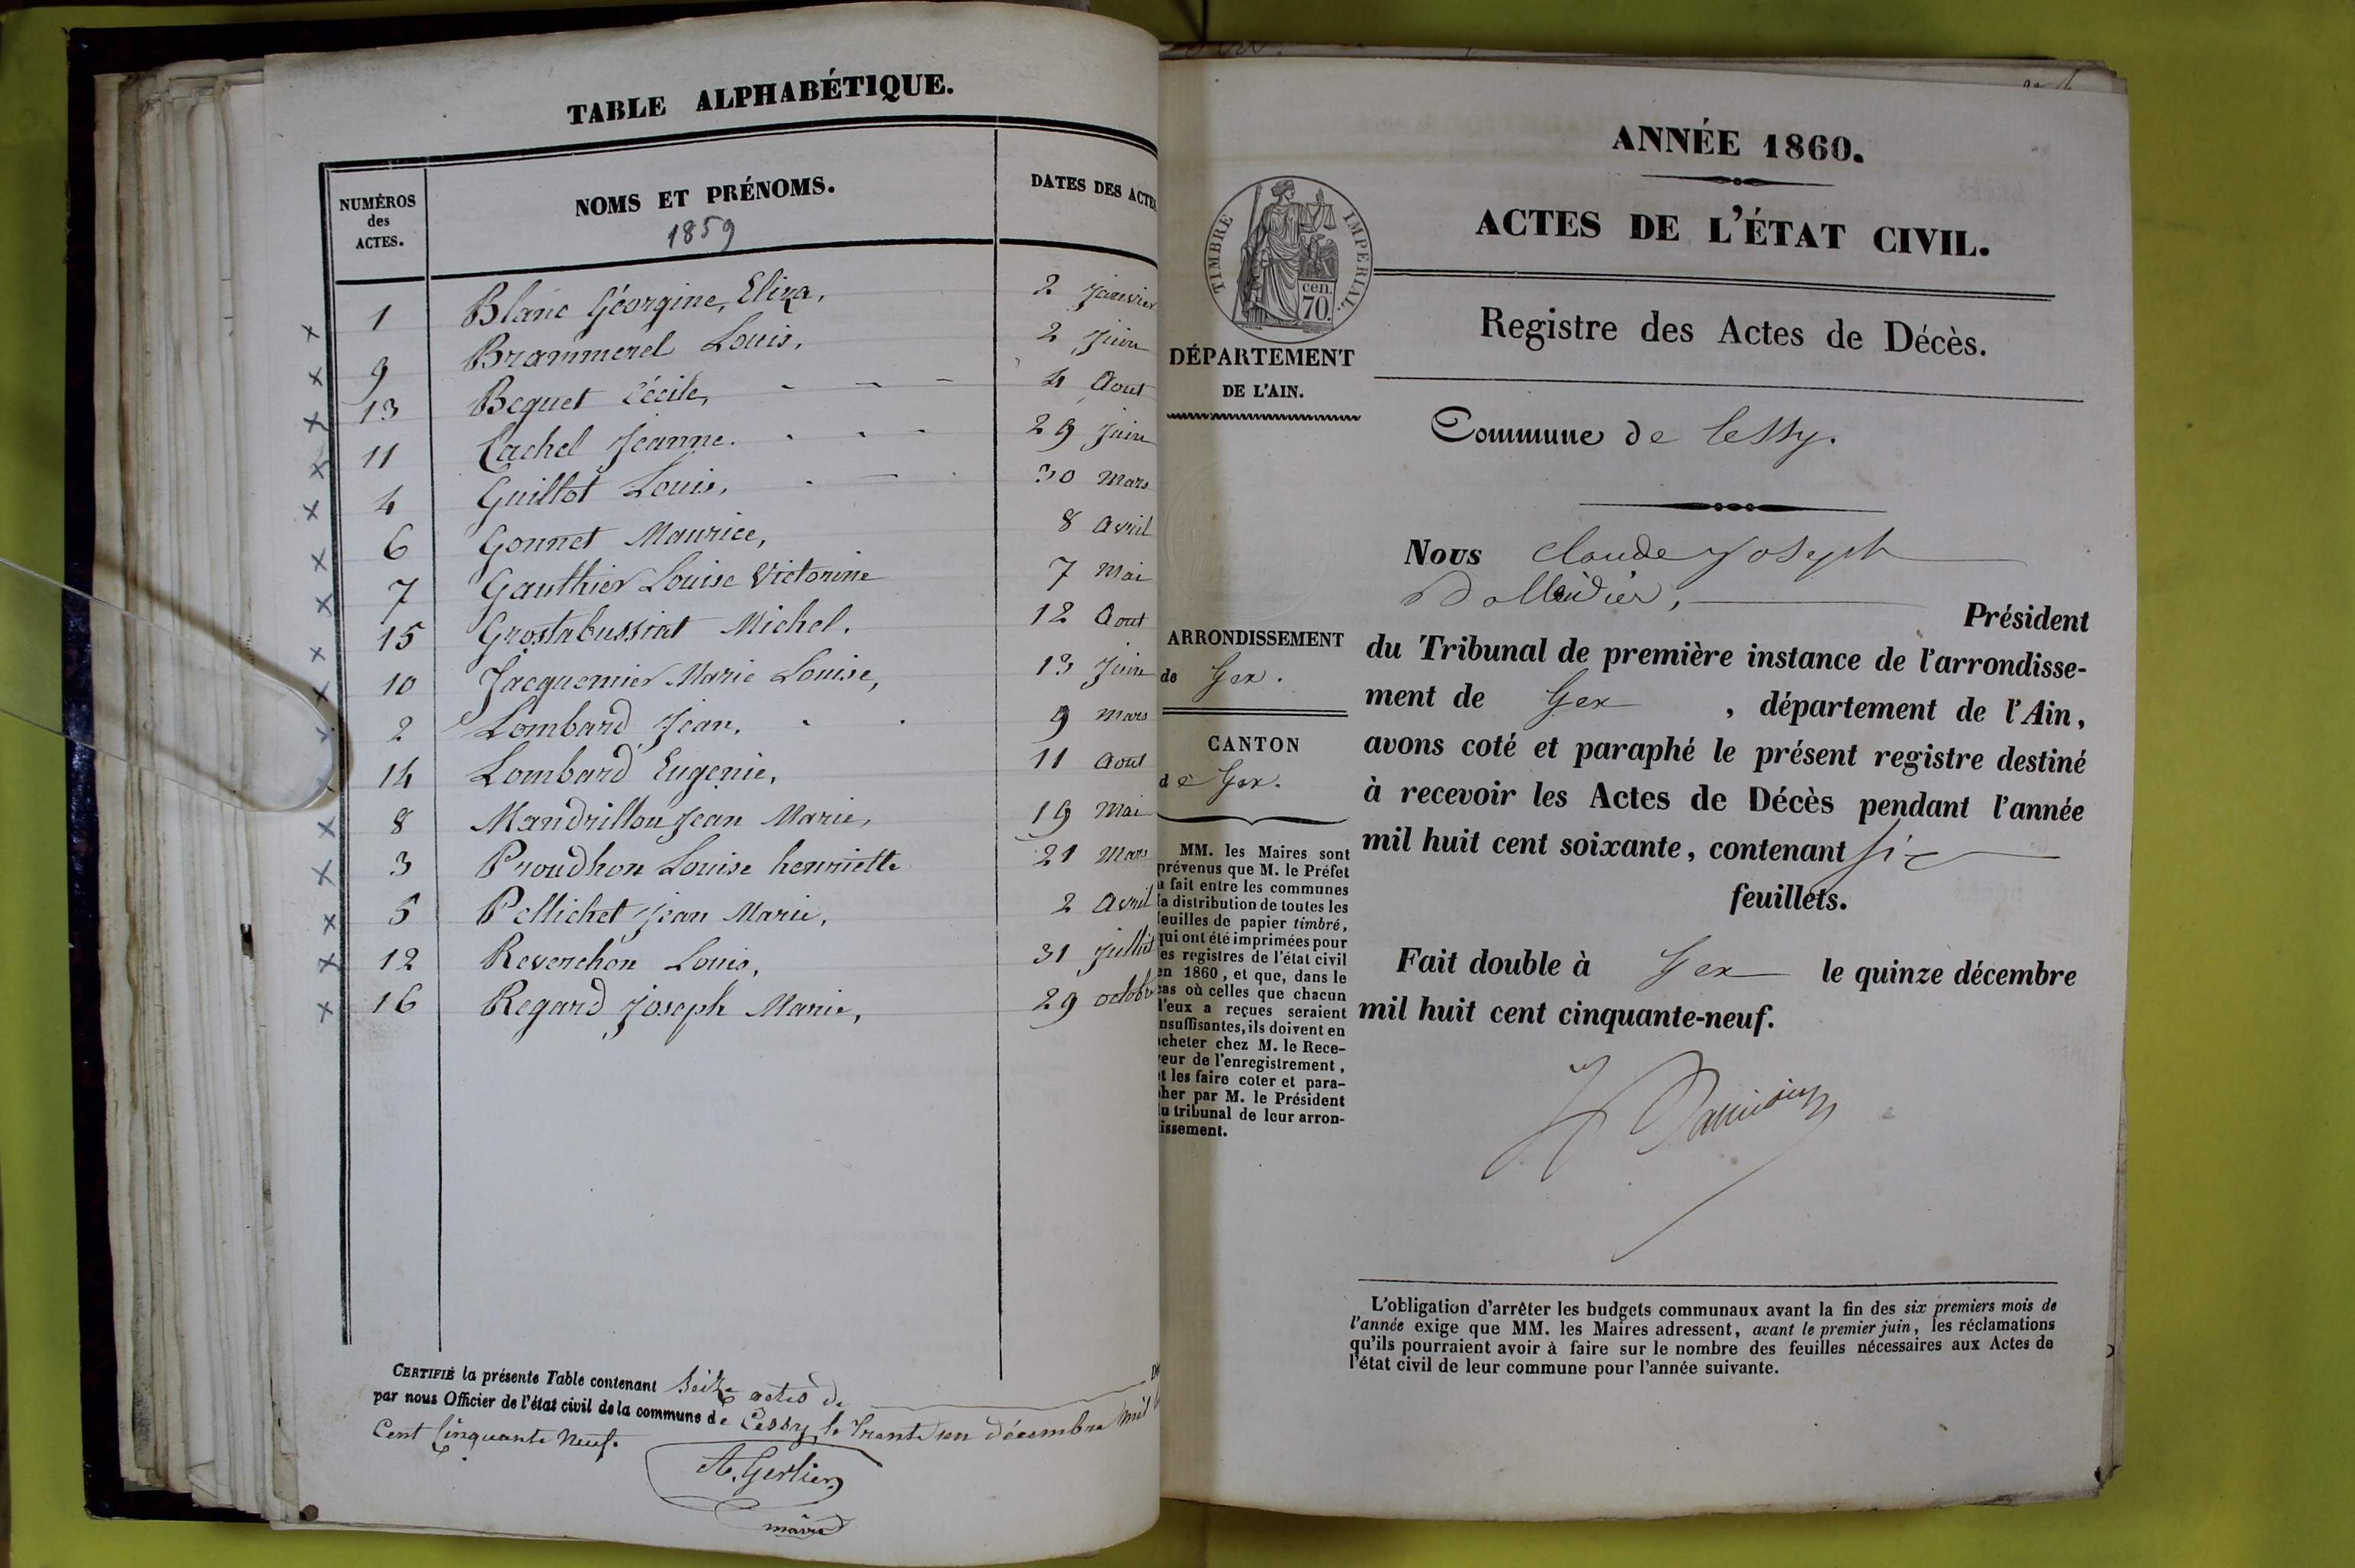 TABLE ALPHABÉTIQUE.
NUMÉROS des ACTES.
NOMS ET PRÉNOMS.
1859
DATES DES ACTE
1 Blanc Géorgine, Eliza, 2 Janvier
9 Brammerel Louis, 2 Juin
13 Bequet Cécile, 4 Aout
11 Cachel Jeanne. 29 Juin
4 Guillot Louis, 30 Mars
6 Gonnet Maurice, 8 Avril
7 Gauthier Louise Victorine 7 Mai
15 Grostabussiat Michel. 12 Aout
10 Jacquemier Marie Louise, 13 Juin
2 Lombard Jean, 9 Mars
14 Lombard Eugenie, 11 Aout
8 Mandrillon Jean Marie, 19 Mai
3 Proudhon Louise henriette 21 Mars
5 Pellichet Jean Marie, 2 Avril
12 Reverchon Louis, 31 Juillet
16 Regard Joseph Marie, 29 octobr
CERTIFIÉ la présente Table contenant Seize actes de
par nous Officier de l'état civil de la commune de Cessy, le Trente un décembre Mil
Cent Cinquante Neuf.
A. Gerlier
maire
ANNÉE 1860.
ACTES DE L'ÉTAT CIVIL.
TIMBRE IMPERIAL.
cen.
70.
Registre des Actes de Décès.
DÉPARTEMENT
DE L'AIN.
Commune de Cessy.
Nous Claude Joseph
Président
du Tribunal de première instance de l'arrondisse-
ment de Gex, département de l'Ain,
avons coté et paraphé le présent registre destiné
à recevoir les Actes de Décès pendant l'année
mil huit cent soixante, contenant six
feuillets.
Fait double à Gex le quinze décembre
mil huit cent cinquante-neuf.
ARRONDISSEMENT
de Gex.
CANTON
de Gex.
MM. les Maires sont
prévenus que M. le Préfet
a fait entre les communes
la distribution de toutes les
feuilles de papier timbré,
qui ont été imprimées pour
les registres de l'état civil
en 1860, et que, dans le
cas où celles que chacun
d'eux a reçues seraient
insuffisantes, ils doivent en
acheter chez M. le Rece-
veur de l'enregistrement,
et les faire coter et para-
pher par M. le Président
du tribunal de leur arron-
dissement.
L'obligation d'arrêter les budgets communaux avant la fin des six premiers mois de
l'année exige que MM. les Maires adressent, avant le premier juin, les réclamations
qu'ils pourraient avoir à faire sur le nombre des feuilles nécessaires aux Actes de
l'état civil de leur commune pour l'année suivante.